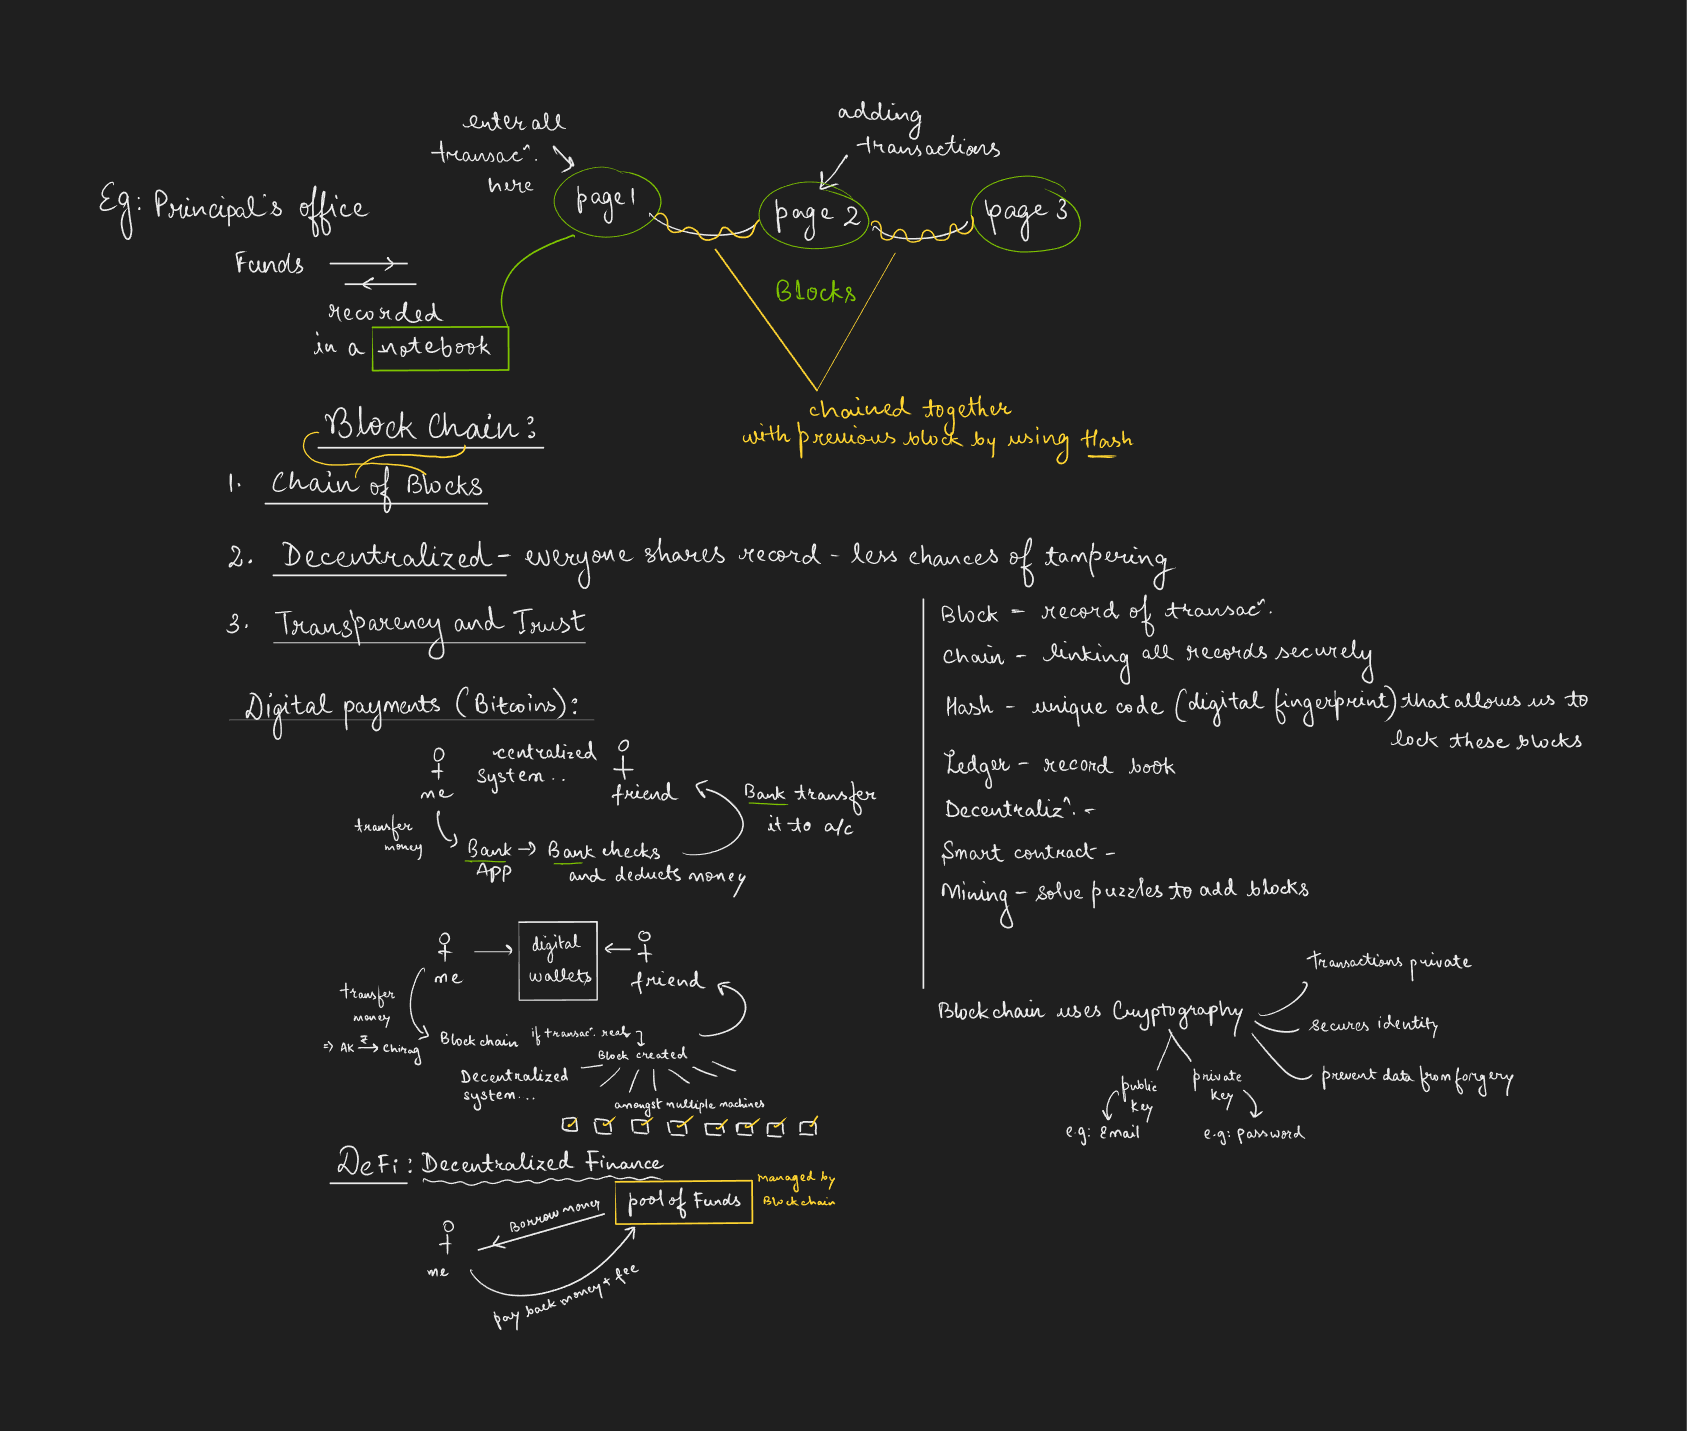 enter all
transacⁿ.
here
adding
transactions
Eg: Principal's office
page 1
page 2
page 3
Funds
recorded
in a notebook
Blocks
chained together
with previous block by using Hash
Block Chain:
1. Chain of Blocks
2. Decentralized - everyone shares record - less chances of tampering
3. Transparency and Trust
Digital payments (Bitcoins):
centralized
system..
me
friend
transfer
money
Bank
APP
Bank checks
and deducts money
Bank transfer
it to a/c
digital
wallets
me
friend
transfer
money
⇒ AK ₹→ Chirag
Blockchain if transacⁿ. real
Block created
Decentralized
system...
amongst multiple machines
DeFi: Decentralized Finance
pool of Funds
managed by
Blockchain
Borrow money
me
pay back money + fee
Block - record of transacⁿ.
Chain - linking all records securely
Hash - unique code (digital fingerprint) that allows us to
lock these blocks
Ledger - record book
Decentralizⁿ. -
Smart contract -
Mining - solve puzzles to add blocks
Blockchain uses Cryptography
transactions private
secures identity
prevent data from forgery
public
key
private
key
e.g: Email
e.g: password